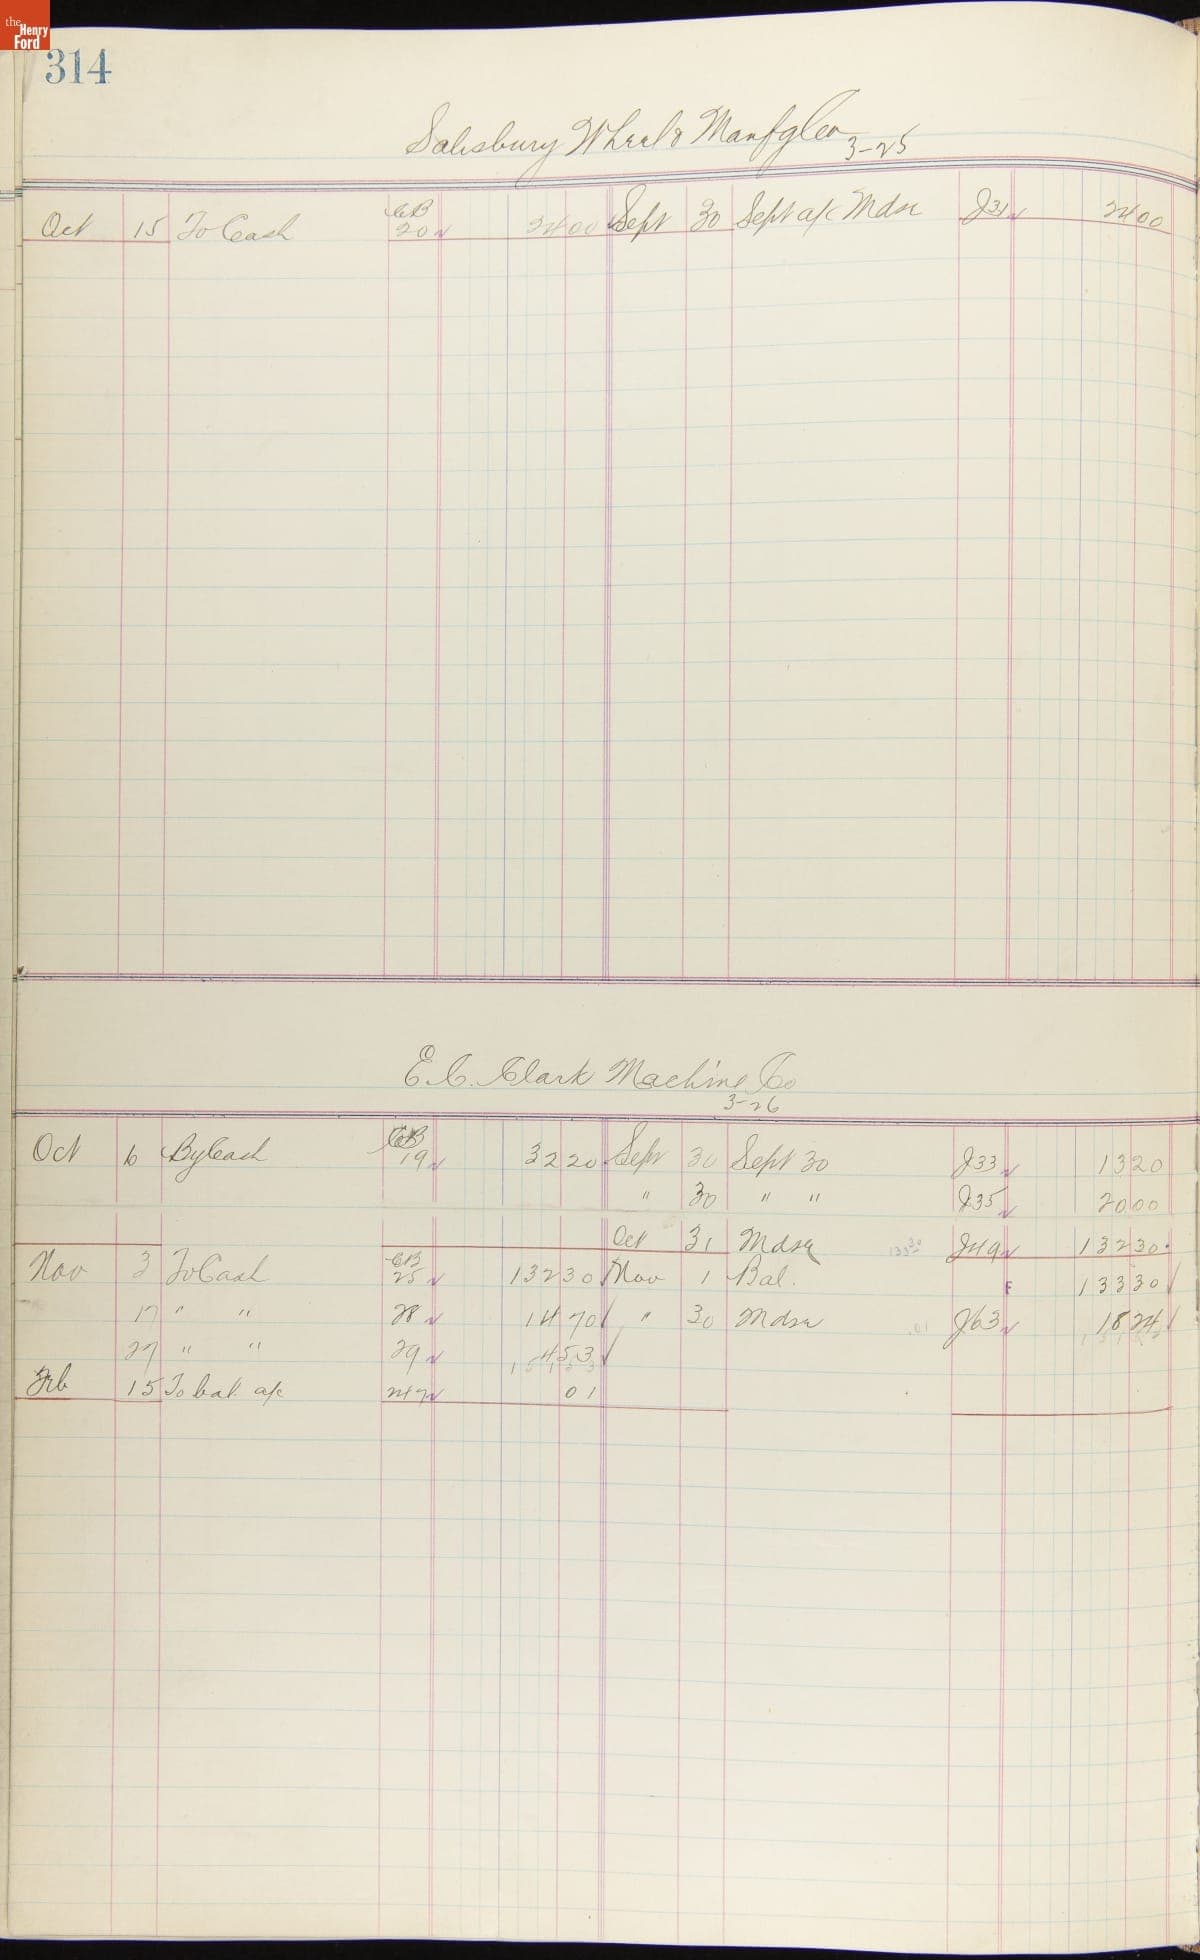 the
Henry
Ford
314
Salisbury Wheel & Manfg Co
3-25
Oct 15 To Cash CB 20 24 00 Sept 30 Sept a/c Mdse J31 24 00
E. C. Clark Machine Co
3-26
Oct 6 By Cash CB 19 32 20 Sept 30 Sept 30 J33 13 20
" 30 " " J35 20 00
Oct 31 Mdse J49 132 30
Nov 3 To Cash CB 25 132 30 Nov 1 Bal. F 133 30
17 " " 28 14 70 " 30 Mdse .01 J63 18 24
27 " " 29 4 53
Feb 15 To bal. a/c 247 01